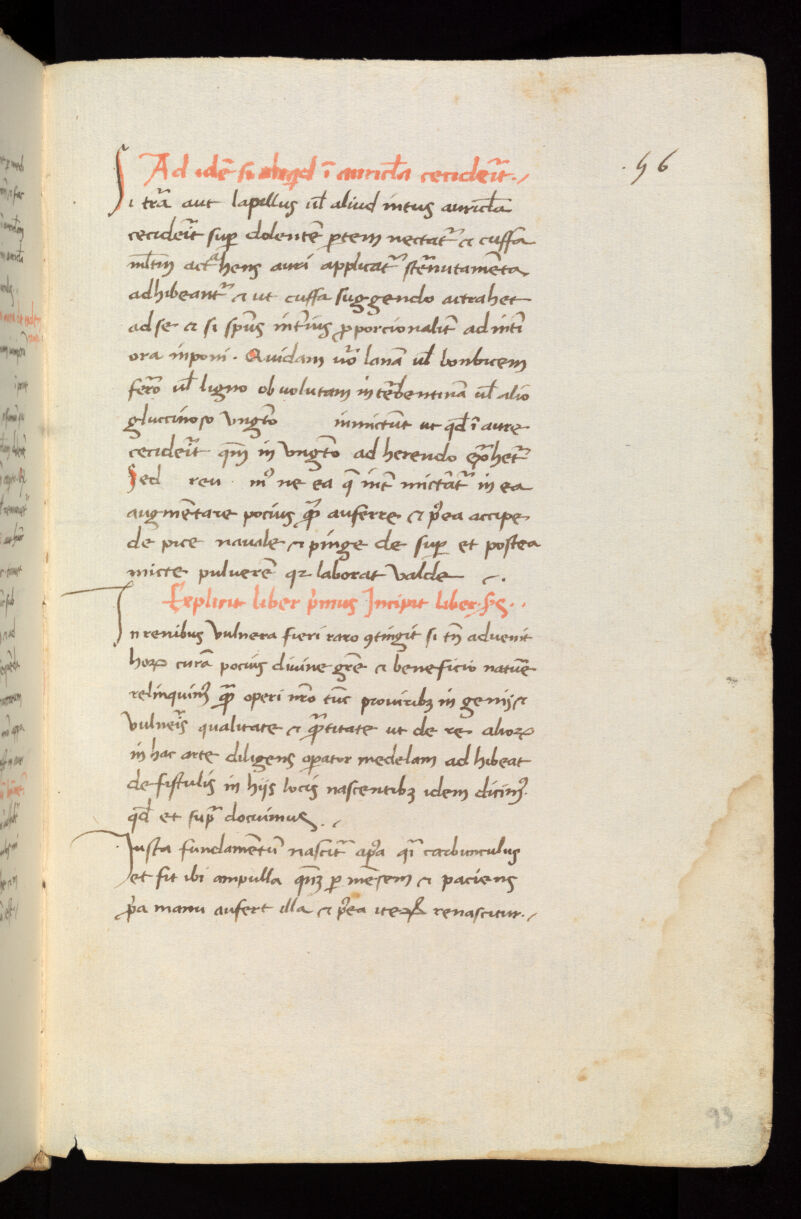 Ad idē si aliqd ī auricl̄a cecider̄it
.56
Si tr̄a aut lapillus ul̄ aliud intus auricl̄a
cecider̄it sup dolentē ptem nectat᷑ & cuffa
mltm act̾hens auri applicat᷑ st̾nutamēta
adhibeant᷑ & ut cuffa suggendo actrahet
ad se & si sp̄us int̾ius pporcionalit̄ ad int̾i
ora inponi. Quidam u̾o lanā ul̄ bonbicem
fer̄o ul̄ ligno obvolutam in t̾bentinā ul̄ alio
gluccinoso Vngt̄o inmictūt ut qd̄ ī aure
cecider̄it qm̄ in Vngt̄o ad herendo ex̾het᷑
Sed ne ea q̄ int̄ mictāt᷑ in ea
augmētare pocius qm̄ auferre & p̾ea accipe
de pice navale & pinge de sup et postea
micte pulverē qz laborat valde
Explicit liber p̾mus Incipit liber
In renibus Vulnera fieri raro ꝯtingit si tn̄ advenit
hoꝝ curā pocius divine gr̄e & beneficio natur̄e
relinquim᷒ qm̄ operi nr̄o tūc proviribꝫ in genij &
Vulner̄is qualitate & qntitate ut de re alioꝝ
in hac arte diligens opator medelam ad hibeat
de fistulis in hijs locis nascentibꝫ idem dicim᷒
qd̄ et sup̾ docuimus
Iusta fundamētū nascit᷑ ap̾a q̾i carbunculus
et fit ibi ampulla p mēsem & paciens
p̾a manu aufert illa & p̾ea iteꝝ renascitur
93